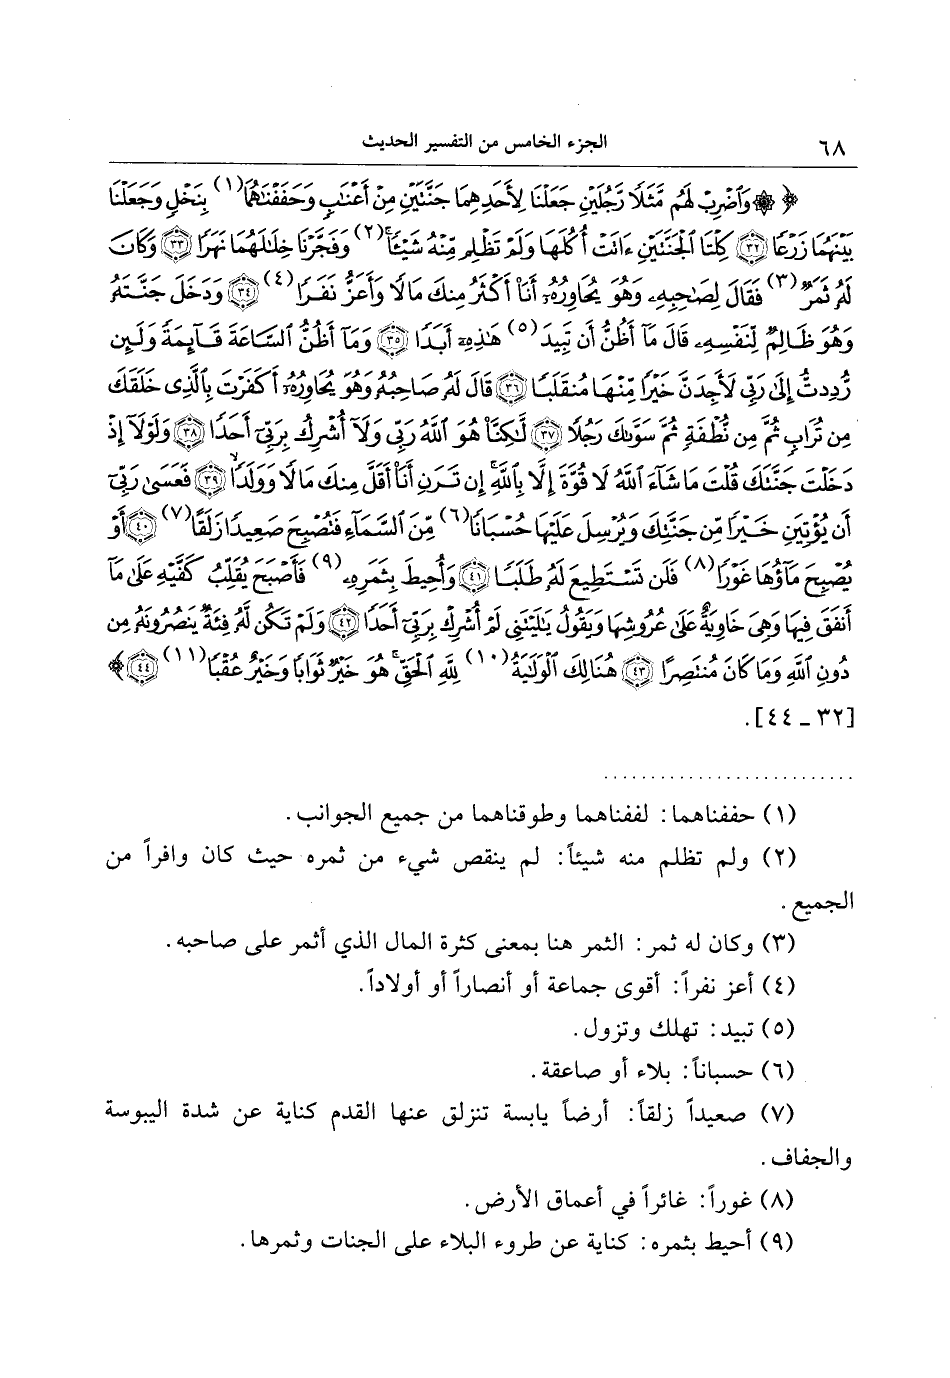 ٦٨
الجزء الخامس من التفسير الحديث
﴿ ۞ وَٱضۡرِبۡ لَهُم مَّثَلٗا رَّجُلَيۡنِ جَعَلۡنَا لِأَحَدِهِمَا جَنَّتَيۡنِ مِنۡ أَعۡنَٰبٖ وَحَفَفۡنَٰهُمَا(١) بِنَخۡلٖ وَجَعَلۡنَا
بَيۡنَهُمَا زَرۡعٗا ٣٢ كِلۡتَا ٱلۡجَنَّتَيۡنِ ءَاتَتۡ أُكُلَهَا وَلَمۡ تَظۡلِم مِّنۡهُ شَيۡـٔٗاۚ(٢) وَفَجَّرۡنَا خِلَٰلَهُمَا نَهَرٗا ٣٣ وَكَانَ
لَهُۥ ثَمَرٞ(٣) فَقَالَ لِصَٰحِبِهِۦ وَهُوَ يُحَاوِرُهُۥٓ أَنَا۠ أَكۡثَرُ مِنكَ مَالٗا وَأَعَزُّ نَفَرٗا(٤) ٣٤ وَدَخَلَ جَنَّتَهُۥ
وَهُوَ ظَالِمٞ لِّنَفۡسِهِۦ قَالَ مَآ أَظُنُّ أَن تَبِيدَ(٥) هَٰذِهِۦٓ أَبَدٗا ٣٥ وَمَآ أَظُنُّ ٱلسَّاعَةَ قَآئِمَةٗ وَلَئِن
رُّدِدتُّ إِلَىٰ رَبِّي لَأَجِدَنَّ خَيۡرٗا مِّنۡهَا مُنقَلَبٗا ٣٦ قَالَ لَهُۥ صَاحِبُهُۥ وَهُوَ يُحَاوِرُهُۥٓ أَكَفَرۡتَ بِٱلَّذِي خَلَقَكَ
مِن تُرَابٖ ثُمَّ مِن نُّطۡفَةٖ ثُمَّ سَوَّىٰكَ رَجُلٗا ٣٧ لَّٰكِنَّا۠ هُوَ ٱللَّهُ رَبِّي وَلَآ أُشۡرِكُ بِرَبِّيٓ أَحَدٗا ٣٨ وَلَوۡلَآ إِذۡ
دَخَلۡتَ جَنَّتَكَ قُلۡتَ مَا شَآءَ ٱللَّهُ لَا قُوَّةَ إِلَّا بِٱللَّهِۚ إِن تَرَنِ أَنَا۠ أَقَلَّ مِنكَ مَالٗا وَوَلَدٗا ٣٩ فَعَسَىٰ رَبِّيٓ
أَن يُؤۡتِيَنِ خَيۡرٗا مِّن جَنَّتِكَ وَيُرۡسِلَ عَلَيۡهَا حُسۡبَانٗا(٦) مِّنَ ٱلسَّمَآءِ فَتُصۡبِحَ صَعِيدٗا زَلَقًا(٧) ٤٠ أَوۡ
يُصۡبِحَ مَآؤُهَا غَوۡرٗا(٨) فَلَن تَسۡتَطِيعَ لَهُۥ طَلَبٗا ٤١ وَأُحِيطَ بِثَمَرِهِۦ(٩) فَأَصۡبَحَ يُقَلِّبُ كَفَّيۡهِ عَلَىٰ مَآ
أَنفَقَ فِيهَا وَهِيَ خَاوِيَةٌ عَلَىٰ عُرُوشِهَا وَيَقُولُ يَٰلَيۡتَنِي لَمۡ أُشۡرِكۡ بِرَبِّيٓ أَحَدٗا ٤٢ وَلَمۡ تَكُن لَّهُۥ فِئَةٞ يَنصُرُونَهُۥ مِن
دُونِ ٱللَّهِ وَمَا كَانَ مُنتَصِرًا ٤٣ هُنَالِكَ ٱلۡوَلَٰيَةُ(١٠) لِلَّهِ ٱلۡحَقِّۚ هُوَ خَيۡرٞ ثَوَابٗا وَخَيۡرٌ عُقۡبٗا(١١) ٤٤ ﴾
[٣٢ - ٤٤].
(١) حففناهما: لففناهما وطوقناهما من جميع الجوانب.
(٢) ولم تظلم منه شيئاً: لم ينقص شيء من ثمره حيث كان وافراً من
الجميع.
(٣) وكان له ثمر: الثمر هنا بمعنى كثرة المال الذي أثمر على صاحبه.
(٤) أعز نفراً: أقوى جماعة أو أنصاراً أو أولاداً.
(٥) تبيد: تهلك وتزول.
(٦) حسباناً: بلاء أو صاعقة.
(٧) صعيداً زلقاً: أرضاً يابسة تنزلق عنها القدم كناية عن شدة اليبوسة
والجفاف.
(٨) غوراً: غائراً في أعماق الأرض.
(٩) أحيط بثمره: كناية عن طروء البلاء على الجنات وثمرها.